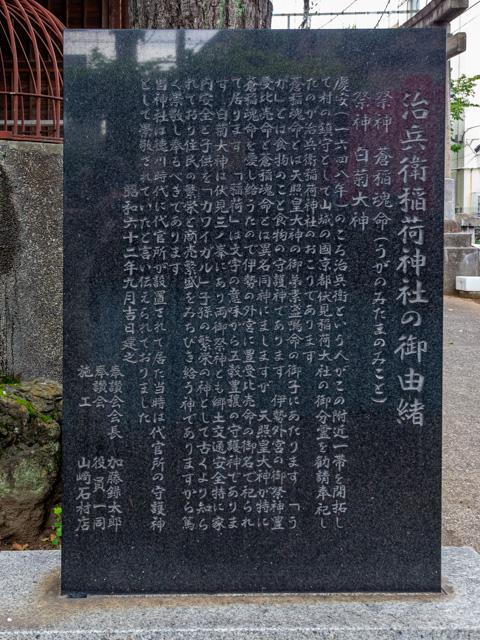 治兵衛稲荷神社の御由緒
祭神 蒼稲魂命(うがのみたまのみこと)
祭神 白菊大神
慶安(一六四八年)のころ治兵衛という人がこの附近一帯を開拓し
て村の鎮守として山城の國京都伏見稲荷大社の御分霊を勧請奉祀し
たのが治兵衛稲荷神社のおこりであります
蒼稲魂命とは天照皇大神の御弟素盞嗚命の御子にあたります 「う
か」とは食物のこと食物の守護神であります 伊勢外宮の御祭神豊
受比売命と蒼稲魂命とは異名同神にましますが 天照皇大神が特に
蒼稲魂命を愛し給うたので伊勢の外宮に豊受比売命の御名で祀られ
て居ります 「稲荷」は文字の意味から五穀豊穣の守護神でありま
す 白菊大神は伏見三ノ峯にあり両御祭神とも郷土交通安全特に家
内安全と子供を「カワイガル」子孫の繁栄の神として古くより知ら
れており住民の繁栄と商売繁盛をみちびき給う神でありますから篤
く崇敬し奉るべきであります
当神社は徳川時代に代官所が設置されて居た当時は代官所の守護神
として崇敬されていたと言い伝えられておりました
昭和六十二年九月吉日建之
奉讃会会長 加藤録太郎
奉讃会 役員一同
施工 山崎石材店